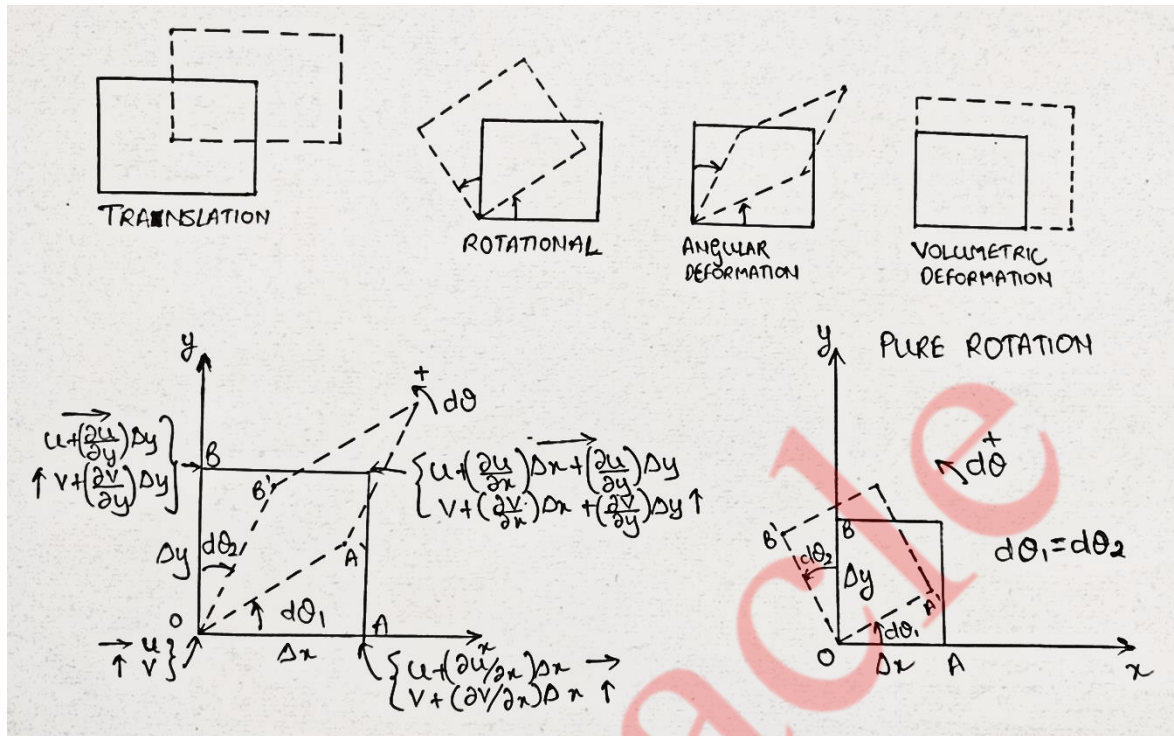 TRANSLATION
ROTATIONAL
ANGULAR
DEFORMATION
VOLUMETRIC
DEFORMATION
y
+
dθ
u+(∂u/∂y)Δy
↑ v+(∂v/∂y)Δy
B
B'
u+(∂u/∂x)Δx+(∂u/∂y)Δy
v+(∂v/∂x)Δx+(∂v/∂y)Δy ↑
Δy
dθ₂
A'
dθ₁
O
A
x
→ u
↑ v
Δx
u+(∂u/∂x)Δx →
v+(∂v/∂x)Δx ↑
y
PURE ROTATION
+
dθ
B'
B
dθ₂
Δy
dθ₁=dθ₂
A'
dθ₁
O
Δx
A
x
acle